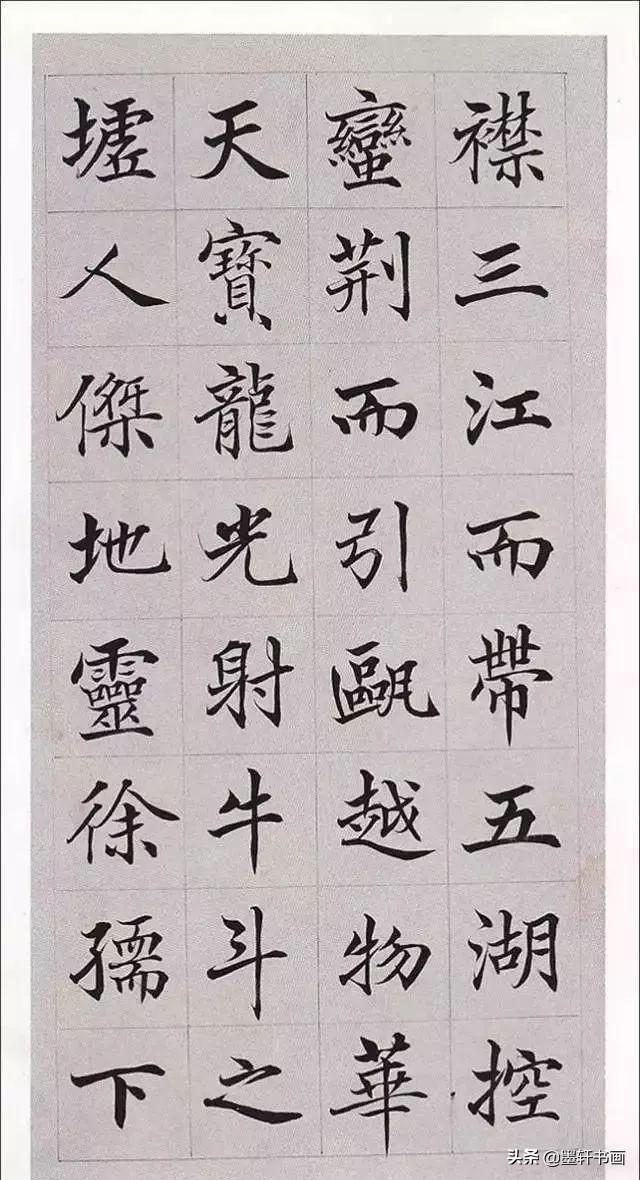 襟三江而帶五湖控
蠻荆而引甌越物華
天寶龍光射牛斗之
墟人傑地靈徐孺下
头条 @墨轩书画